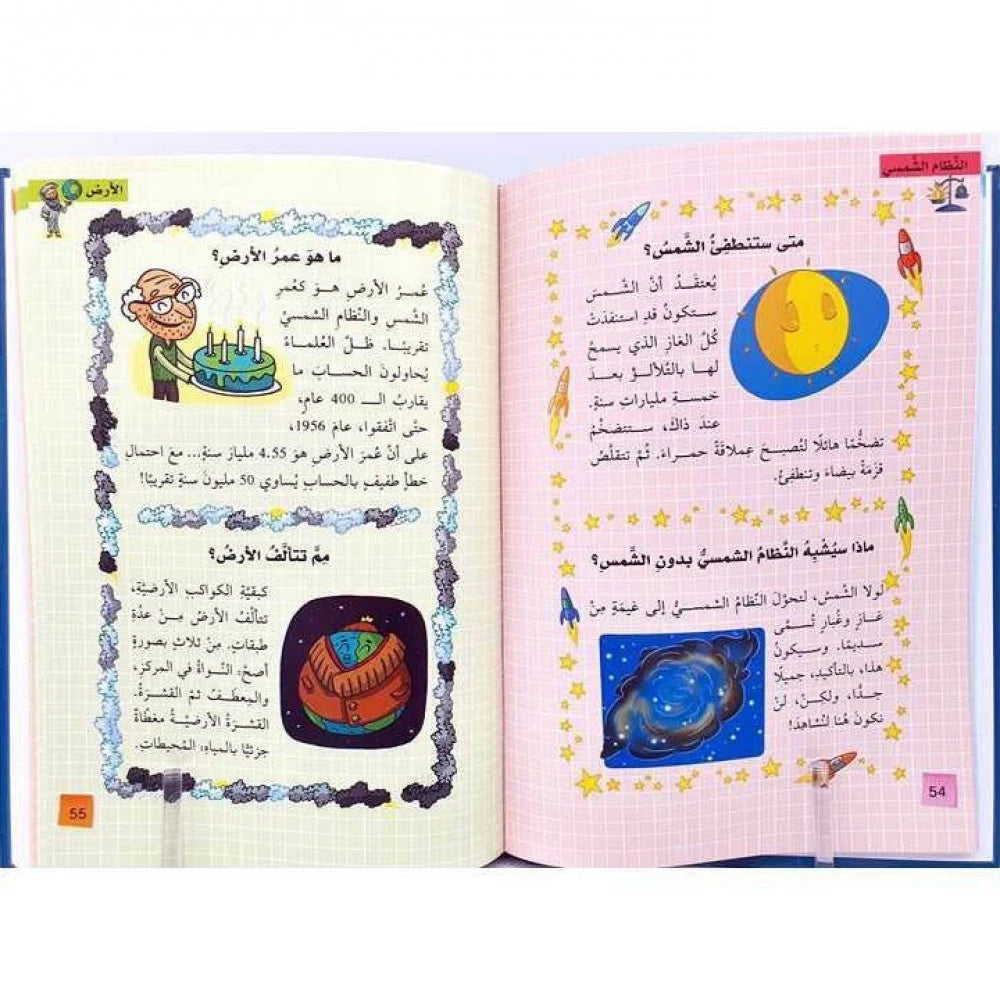 النِّظام الشَّمسي
متى ستنطفِئُ الشَّمسُ؟
يُعتقَدُ أنّ الشَّمسَ
ستكونُ قدِ استنفدَتْ
كُلَّ الغازِ الذي يسمحُ
لها بالتَّلألُؤِ بعدَ
خمسةِ ملياراتِ سنةٍ.
عندَ ذاكَ، ستتضخَّمُ
تضخُّمًا هائلًا لتُصبحَ عِملاقةً حمراءَ. ثُمّ تتقلَّصُ
قزمَةً بيضاءَ وتنطفِئُ.
ماذا سيُشْبِهُ النَّظامُ الشمسيُّ بدونِ الشَّمس؟
لولا الشَّمسُ، لتحوَّلَ النِّظامُ الشمسيُّ إلى غيمَةٍ مِنْ
غازٍ وغُبارٍ تُسمّى
سديمًا. وسيكونُ
هذا، بالتأكيدِ، جميلًا
جدًّا، ولكنْ، لنْ
نكونَ هُنا لنُشاهِدَ!
54
الأرض
ما هوَ عمرُ الأرضِ؟
عُمرُ الأرضِ هوَ كعُمرِ
الشَّمسِ والنِّظامِ الشمسيِّ
تقريبًا. ظلَّ العُلماءُ
يُحاولونَ الحسابَ ما
يقاربُ الـ 400 عامٍ،
حتّى اتَّفقوا، عامَ 1956،
على أنّ عُمرَ الأرضِ هوَ 4.55 مليارَ سنةٍ... معَ احتمالِ
خطأٍ طفيفٍ بالحسابِ يُساوي 50 مليونَ سنةٍ تقريبًا!
مِمَّ تتألَّفُ الأرضُ؟
كبقيَّةِ الكواكبِ الأرضيَّةِ،
تتألَّفُ الأرضُ مِنْ عدَّةِ
طبقاتٍ. مِنْ ثلاثٍ بصورةٍ
أصحَّ: النَّواةُ في المركزِ،
والمِعطَفُ ثمّ القشرَةُ.
القشرَةُ الأرضيَّةُ مغطّاةٌ
جزئيًّا بالمياهِ: المُحيطاتِ.
55